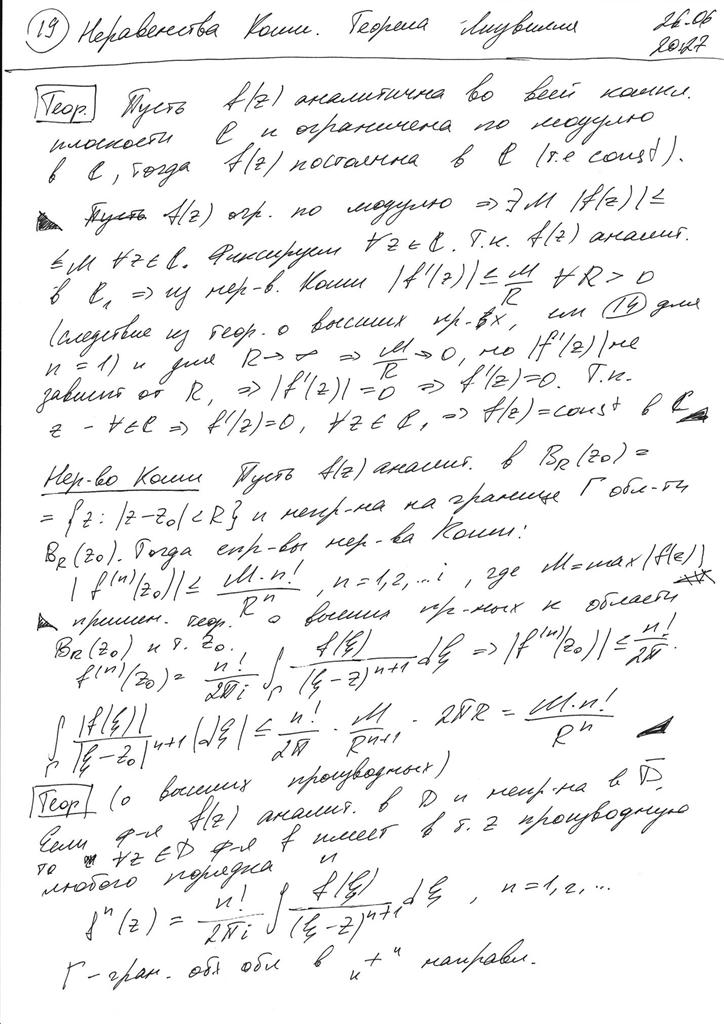 19 Неравенства Коши. Теорема Лиувилля 26.06
20:27
Теор. Пусть f(z) аналитична во всей компл.
плоскости ℂ и ограничена по модулю
в ℂ, тогда f(z) постоянна в ℂ (т.е const).
f(z) огр. по модулю ⇒ ∃ M |f(z)| ≤
≤ M ∀z ∈ ℂ. Фиксируем ∀z ∈ ℂ. Т.к. f(z) аналит.
в ℂ, ⇒ из нер-в. Коши |f'(z)| ≤ M/R ∀R > 0
(следствие из теор. о высших пр-ых, см 14 для
n = 1) и для R → ∞ ⇒ M/R → 0, но |f'(z)| не
зависит от R, ⇒ |f'(z)| = 0 ⇒ f'(z) = 0. Т.к.
z - ∀ ∈ ℂ ⇒ f'(z) = 0, ∀z ∈ ℂ, ⇒ f(z) = const в ℂ
Нер-во Коши Пусть f(z) аналит. в B_R(z₀) =
= {z: |z-z₀| < R} и непр-на на границе Γ обл-ти
B_R(z₀). Тогда спр-вы нер-ва Коши:
|f⁽ⁿ⁾(z₀)| ≤ M·n!/Rⁿ, n = 1,2,...; где M = max|f(z)|
примен. теор. о высших пр-ных к области
B_R(z₀) и т. z₀.
f⁽ⁿ⁾(z₀) = n!/2πi ∫_Γ f(ξ)/(ξ-z)ⁿ⁺¹ dξ ⇒ |f⁽ⁿ⁾(z₀)| ≤ n!/2π ·
∫_Γ |f(ξ)|/|ξ-z₀|ⁿ⁺¹ |dξ| ≤ n!/2π · M/Rⁿ⁺¹ · 2πR = M·n!/Rⁿ
Теор (о высших производных)
Если ф-я f(z) аналит. в D и непр-на в D̄,
то ∀z ∈ D ф-я f имеет в т. z производную
любого порядка n
fⁿ(z) = n!/2πi ∫ f(ξ)/(ξ-z)ⁿ⁺¹ dξ, n = 1,2,...
Γ - гран. обл в "+" направл.